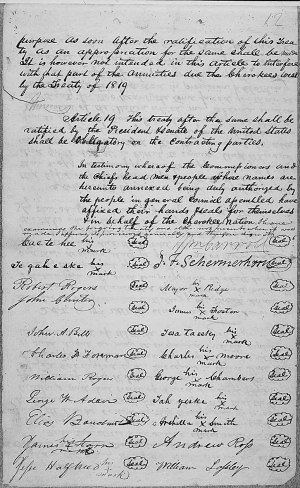 purpose as soon after the ratification of this Trea
ty as an appropriation for the same shall be made
It is however not intended in this article to interfere
with that part of the Annuities due the Cherokees west
by the Treaty of 1819
Article 19. This treaty after the same shall be
ratified by the President & Senate of the United States
shall be obligatory on the Contracting parties.
In testimony whereof the Commissioners and
the Chiefs head men & people whose names are
hereunto annexed being duly authorized by
the people in general Council assembled have
affixed their hands & seals for themselves
& in behalf of the Cherokee nation.
Wm Carroll Seal
Cae te hee his x mark Seal J. F. Schermerhorn Seal
Te gah e ske his x mark Seal
Robert Rogers Seal Major his x mark Ridge Seal
John Gunter Seal
James his x mark Foster Seal
John A. Bell Seal Tesa ta esky his x mark Seal
Charles F. Foreman Seal Charles his x mark Moore Seal
William Rogers Seal George his x mark Chambers Seal
George W. Adair Seal Tah yeske his x mark Seal
Elias Boudinot Seal Archilla his x mark Smith Seal
James Starr his x mark Seal Andrew Ross Seal
Jesse Half breed his x mark Seal William Lassley Seal